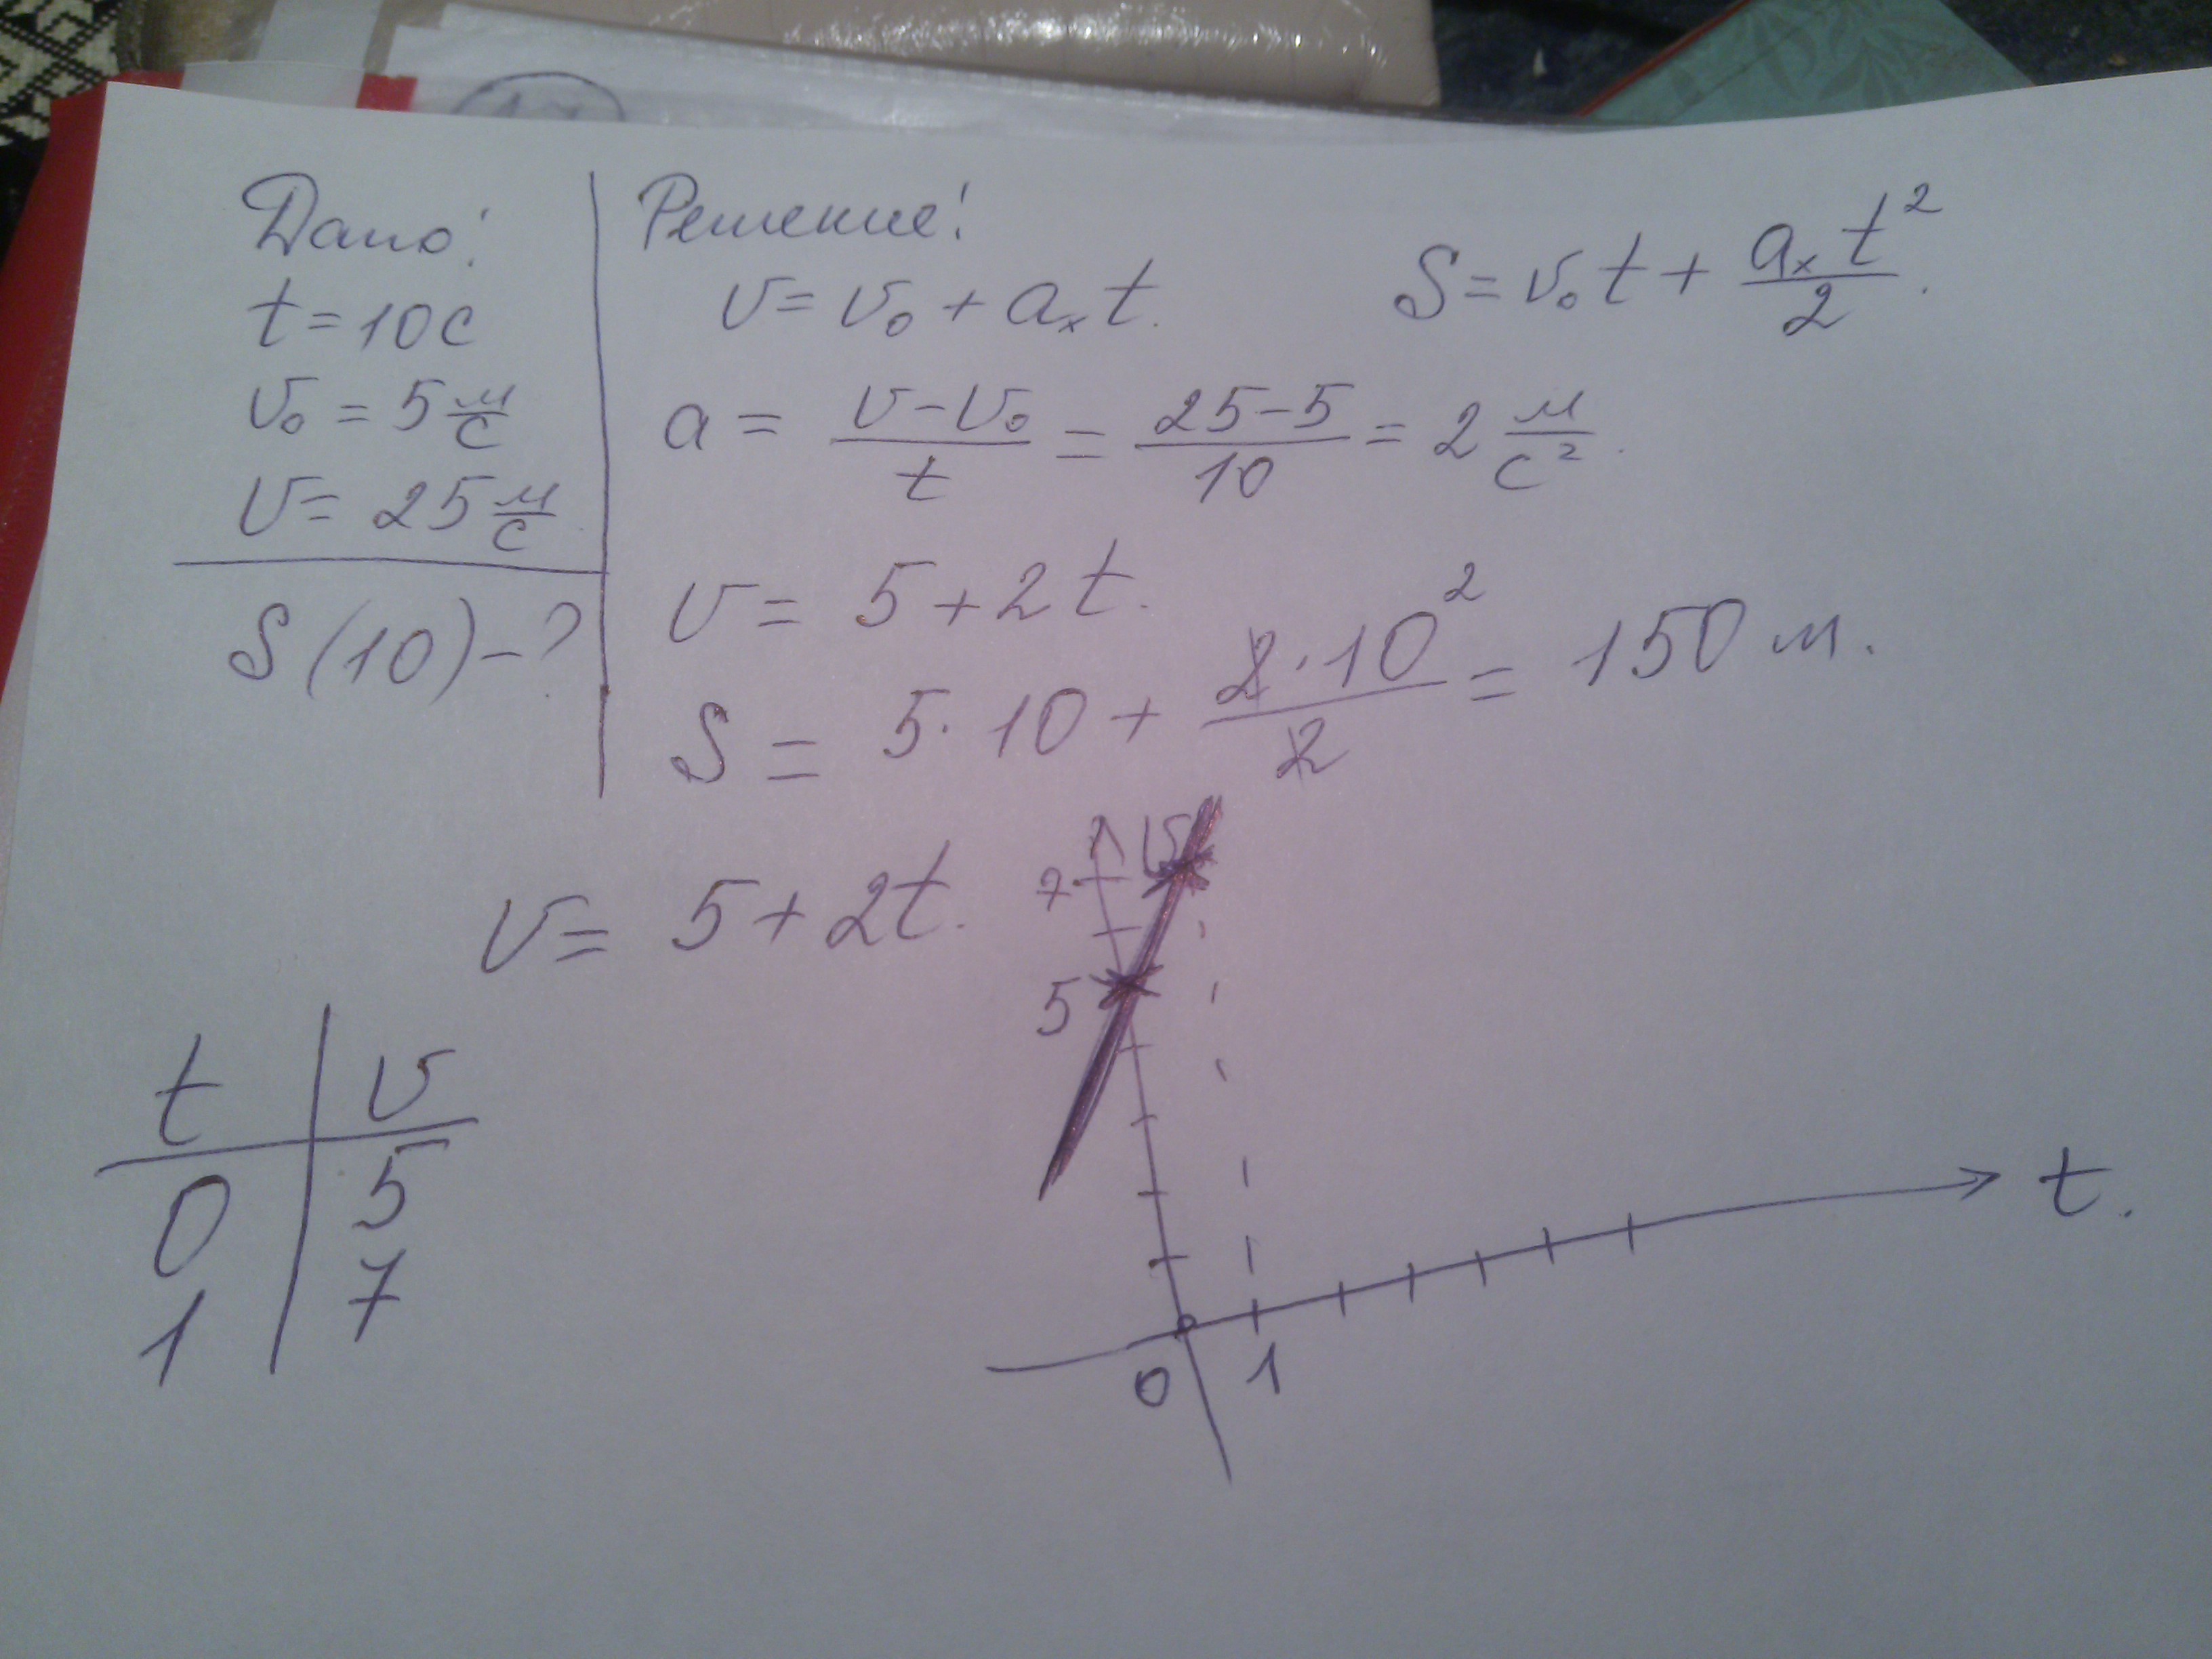 Дано: Решение:
t = 10 с
v₀ = 5 м/с
v = 25 м/с
S(10) - ?
v = v₀ + aₓt. S = v₀t + aₓt²/2.
a = (v - v₀)/t = (25 - 5)/10 = 2 м/с².
v = 5 + 2t.
S = 5·10 + 2·10²/2 = 150 м.
v = 5 + 2t.
t v
0 5
1 7
v
7
5
0 1
t.